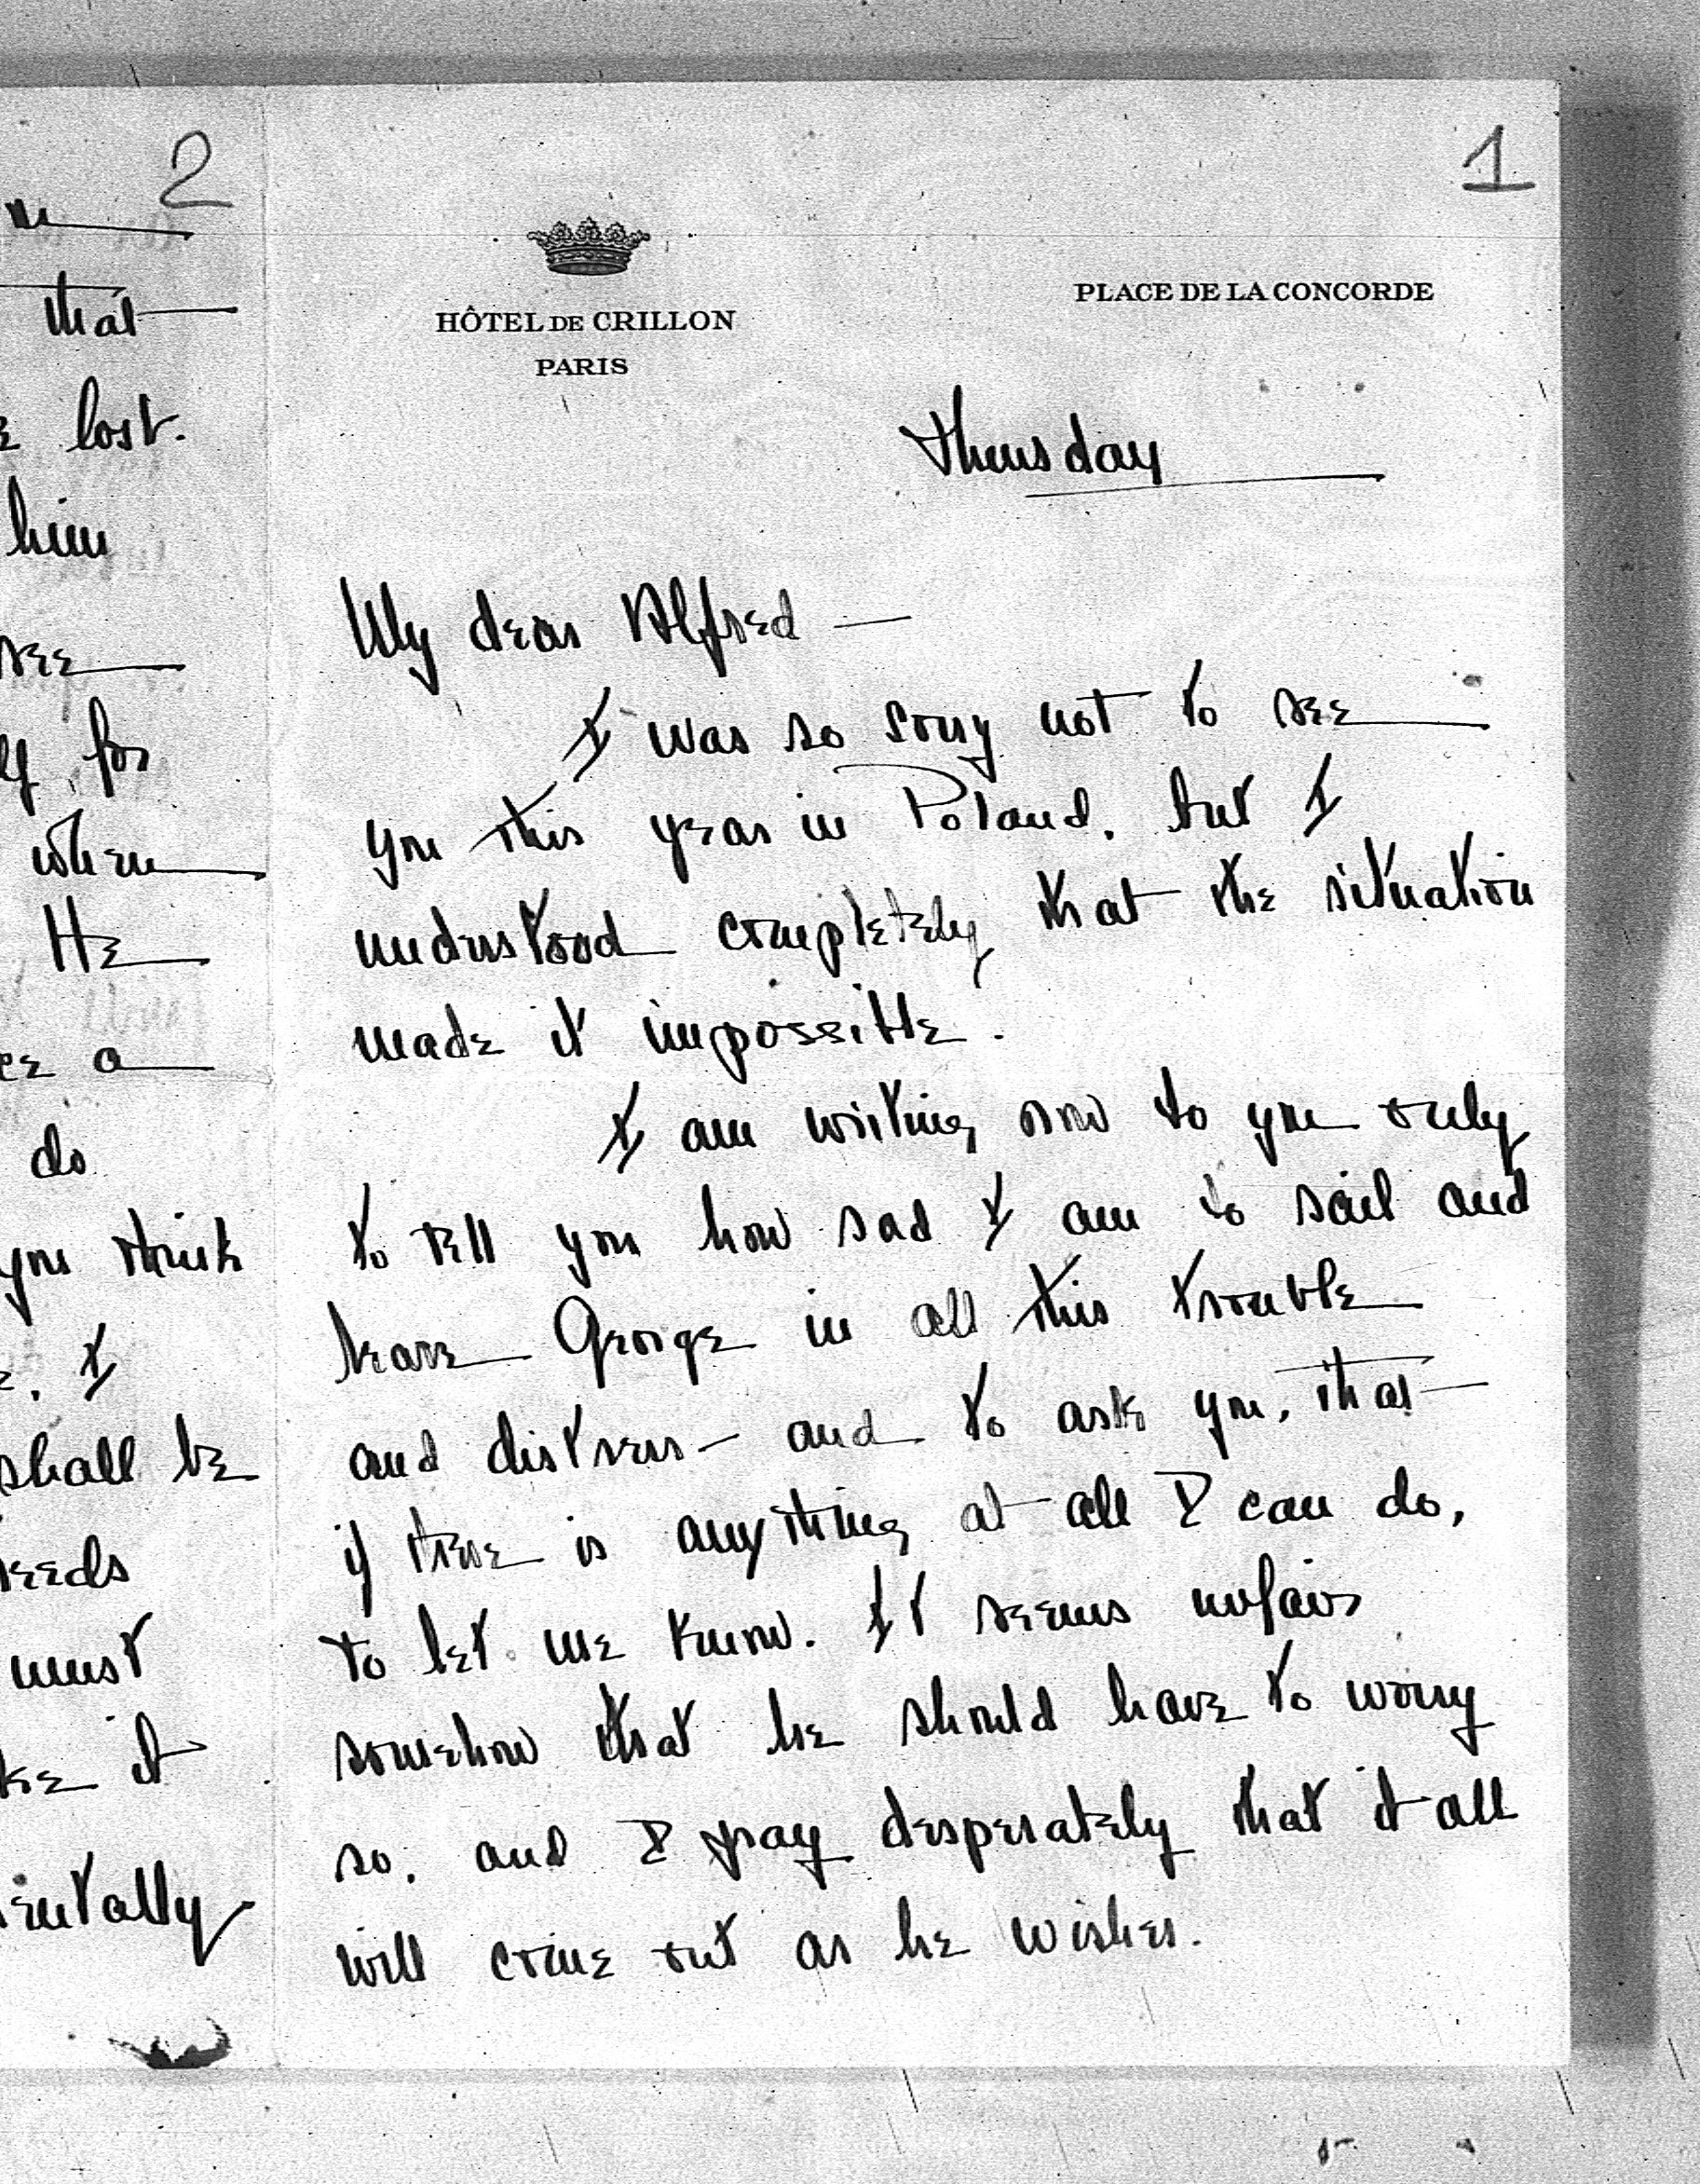 1
HÔTEL DE CRILLON
PARIS
PLACE DE LA CONCORDE
Thursday
My dear Alfred —
I was so sorry not to see
you this year in Poland, but I
understood completely that the situation
made it impossible.
I am writing now to you only
to tell you how sad I am to sail and
leave George in all this trouble
and distress — and to ask you, that
if there is anything at all I can do,
to let me know. It seems unfair
somehow that he should have to worry
so, and I pray desperately that it all
will come out as he wishes.
2
that
lost.
him
see
for
when
He
a
do
you think
I
shall be
needs
must
it